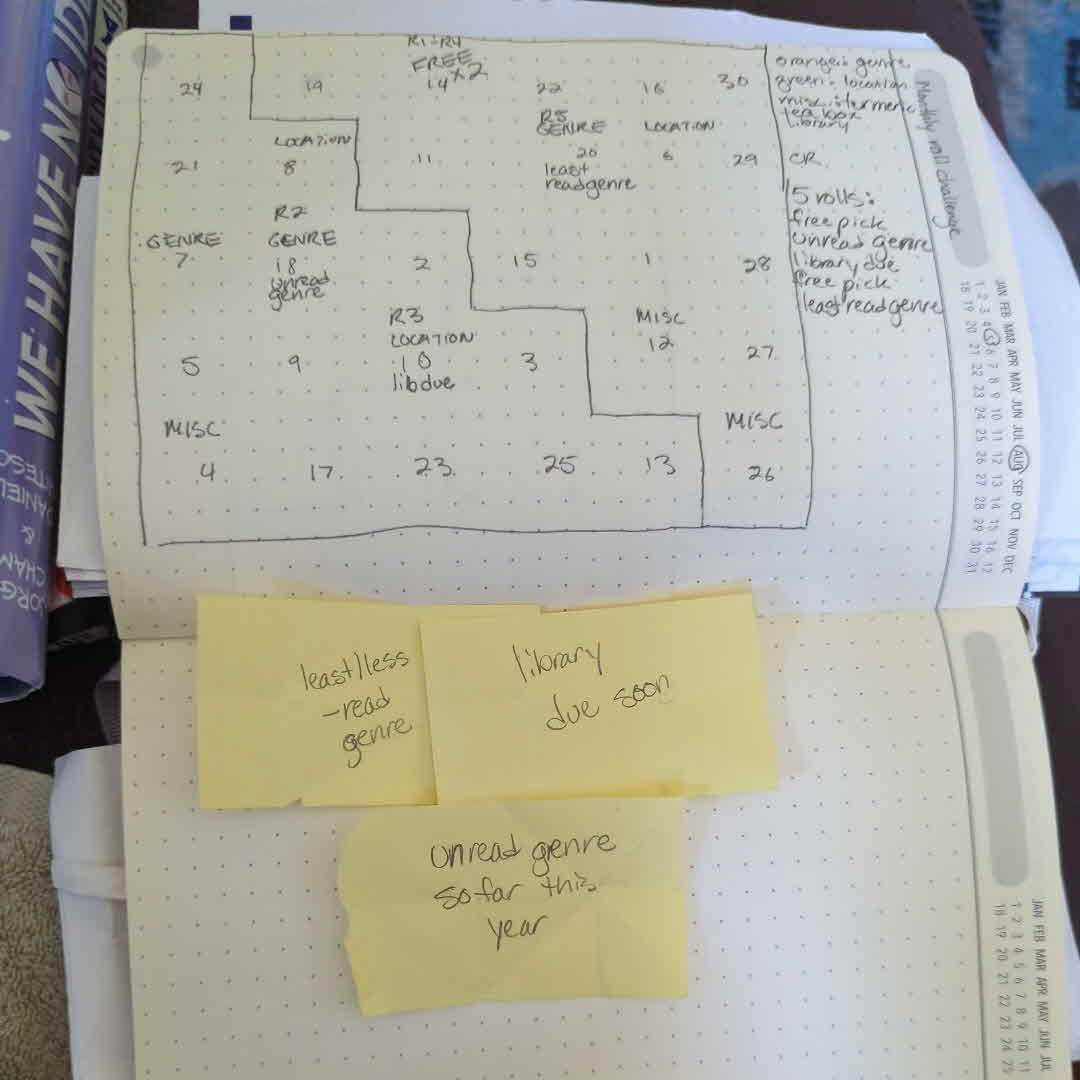 24
19
R1+R4
FREE
14 x2
22
16
30
orange: genre
green: location
misc: turmeric
tea box
library
Monthly roll challenge
21
LOCATION
8
11
R5
GENRE
20
least
read genre
LOCATION
6
29
OR
5 rolls:
free pick
unread genre
library due
free pick
least read genre
GENRE
7
R2
GENRE
18
unread
genre
2
15
1
28
5
9
R3
LOCATION
10
lib due
3
MISC
12
27
MISC
4
17
23
25
13
MISC
26
JAN FEB MAR APR MAY JUN JUL AUG SEP OCT NOV DEC
1 2 3 4 5 6 7 8 9 10 11 12 13 14 15 16 17
18 19 20 21 22 23 24 25 26 27 28 29 30 31
least/less
-read
genre
library
due soon
unread genre
so far this
year
JAN FEB MAR APR MAY JUN JUL
1 2 3 4 5 6 7 8 9 10 11
18 19 20 21 22 23 24 25
WE HAVE NO IDEA
DANIEL
&
JORGE CHAM